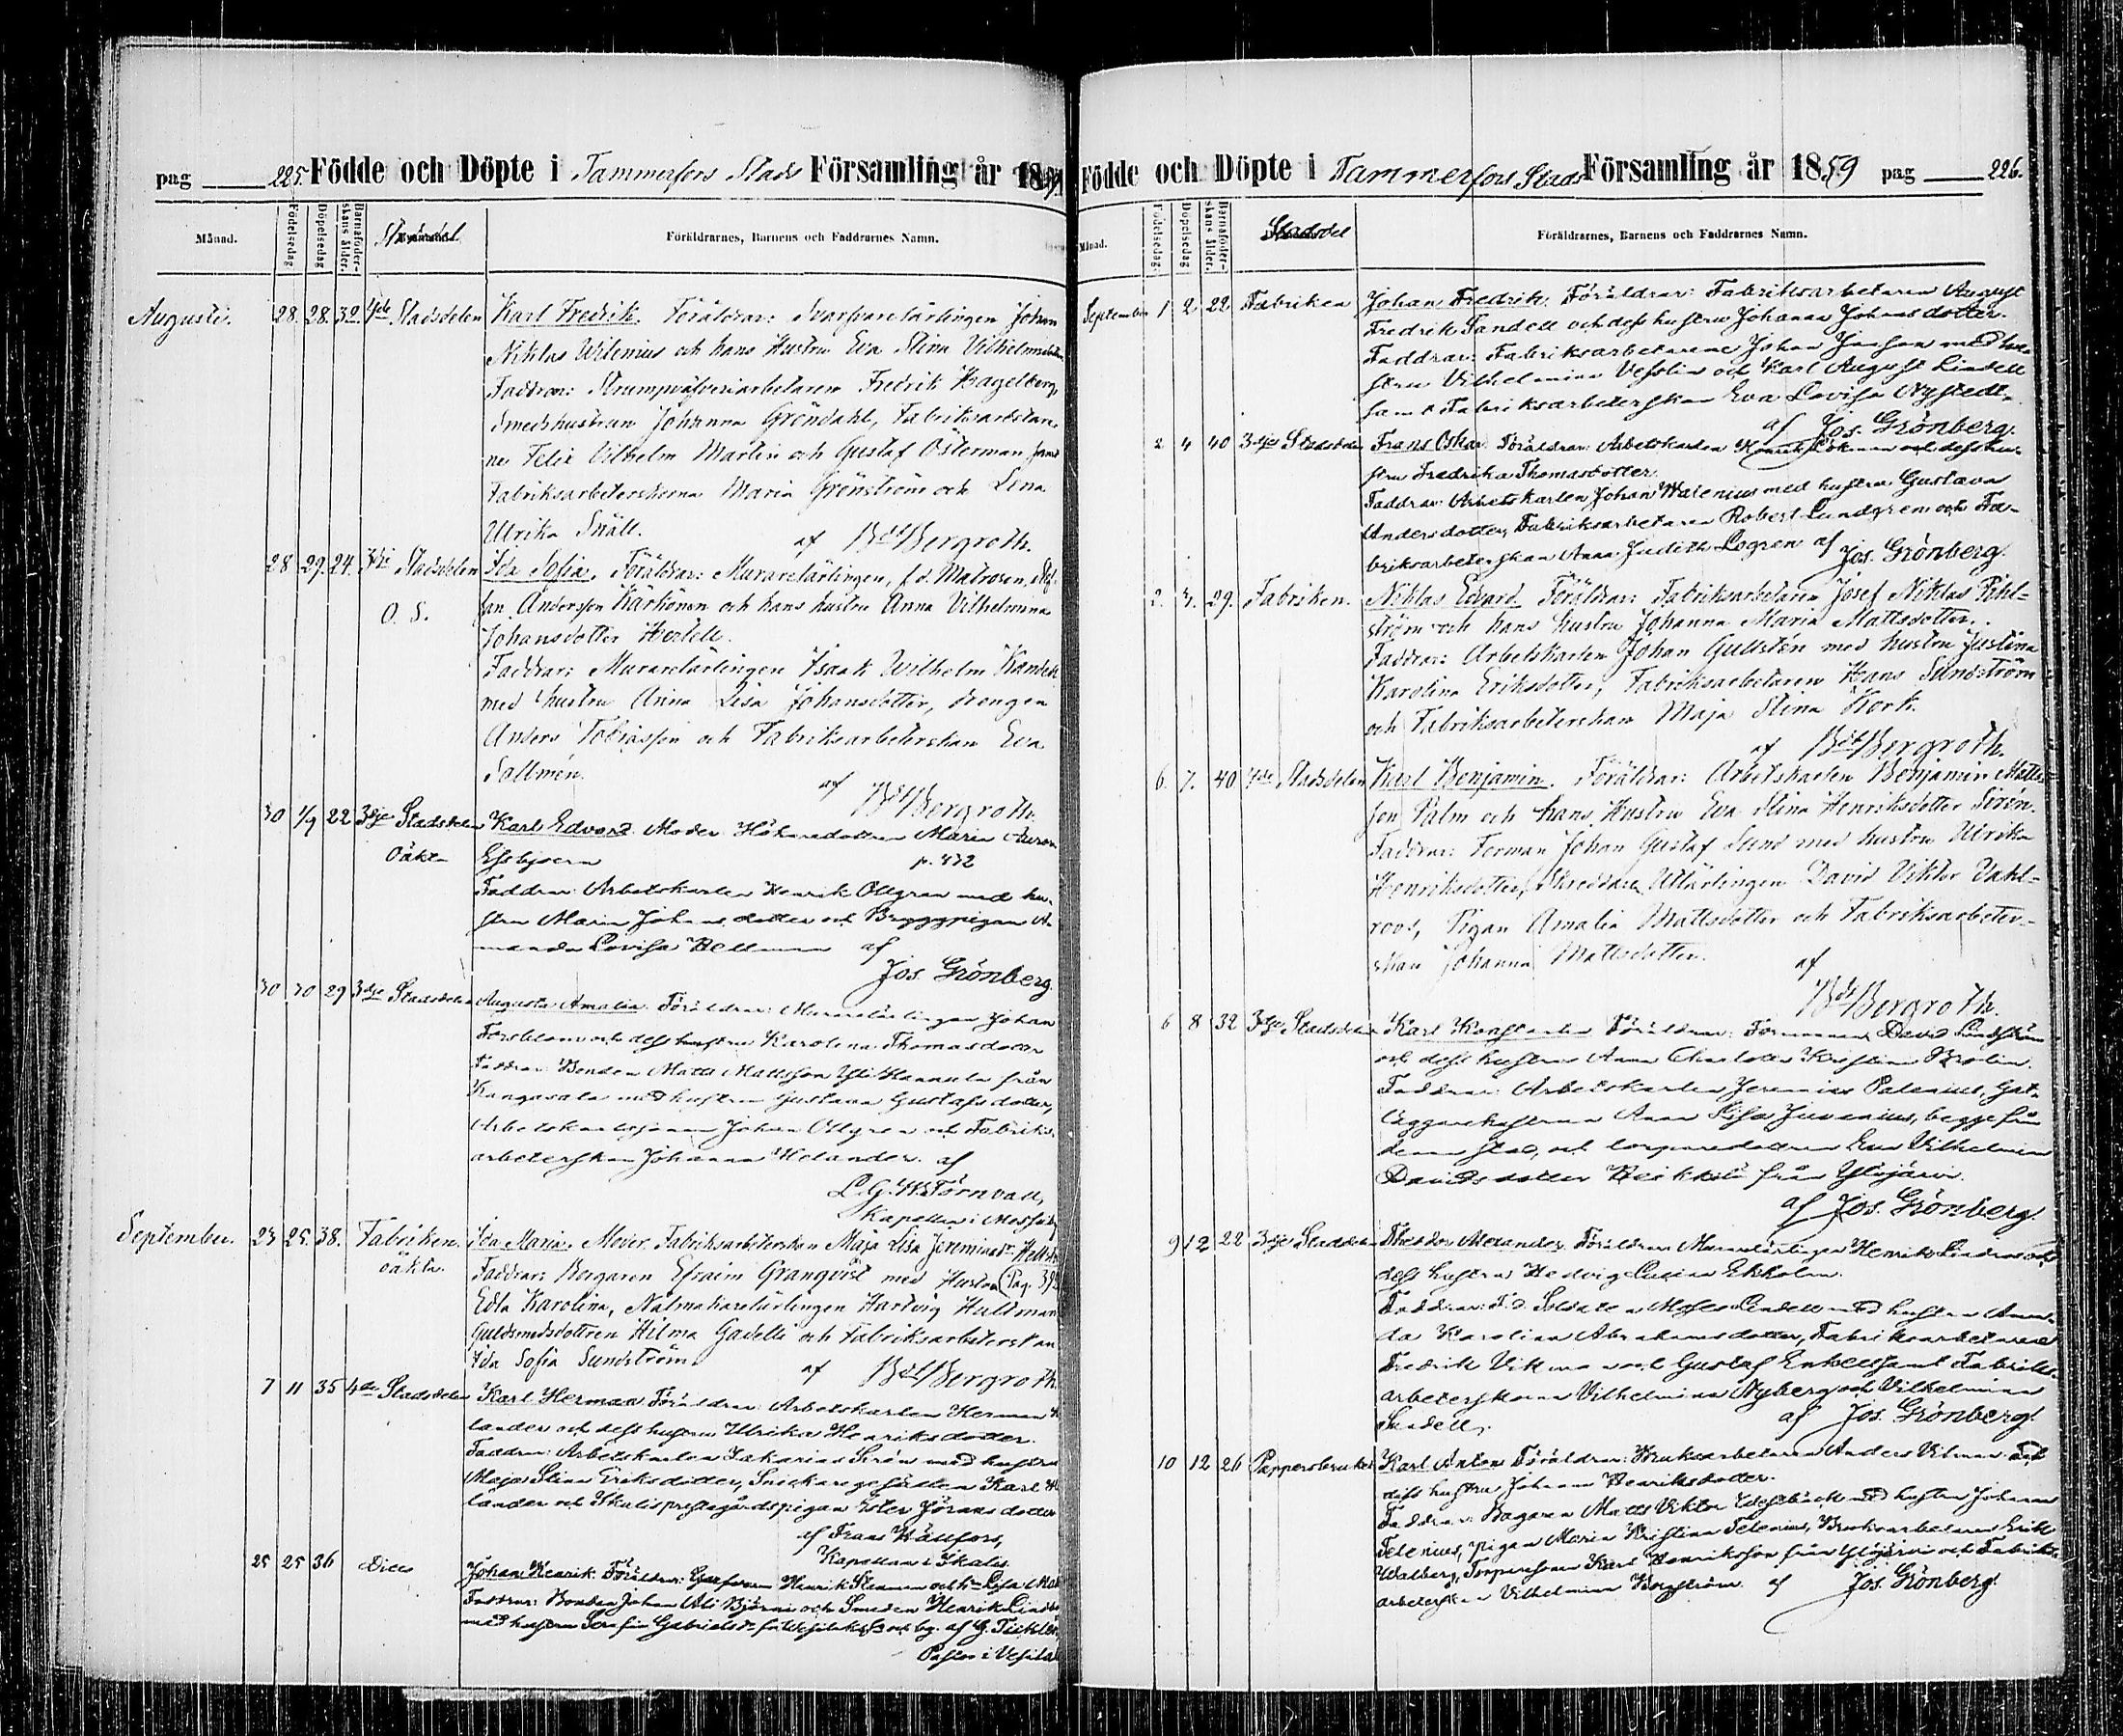 pag 225. Födde och Döpte i Tammerfors Stads Församling år 1859
Månad.
Födelsedag
Döpelsedag
Barnaföderskans ålder.
Stadsdel
Föräldrarnes, Barnens och Faddrarnes Namn.
Augusti. 28. 28. 32. 4de Stadsdelen Karl Fredrik. Föräldrar: Svarfvarelärlingen Johan
Niklas Wilenius och hans Hustru Eva Stina Vilhelmsdotter
Faddrar: Strumpväfveriarbetaren Fredrik Hagelberg,
Smedshustrun Johanna Gröndahl, Fabriksarbetar-
ne Felix Vilhelm Martin och Gustaf Österman samt
Fabriksarbeterskorna Maria Grönström och Lena
Ulrika Snäll. af Bdt Bergroth.
28 29. 24. 3dje Stadsdelen Ida Sofia. Föräldrar: Murarelärlingen, f.d. Matrosen, Stef-
O. S. fan Andersson Kärkönen och hans hustru Anna Vilhelmina
Johansdotter Hertell.
Faddrar: Murarelärlingen Isaak Wilhelm Kandell
med hustru Anna Lisa Johansdotter, drengen
Anders Tobiasson och Fabriksarbeterskan Eva
Sallmén. af Bdt Bergroth.
30 1/9 22 3dje Stadsdelen Karl Edvard. Moder Hökaredottren Maria Aurora
Oäkta p. 472
Faddrar: Arbetskarlen Henrik Ollgren med hu-
stru Maria Johansdotter och Bryggpigan A-
manda Lovisa Hellman af
Jos. Grönberg.
30 30 29 3dje Stadsdelen Augusta Amalia. Föräldrar: Murarelärlingen Johan
Forsblom och dess hustru Karolina Thomasdotter
Faddrar: Bonden Matts Mattsson Yli Hannula från
Kangasala med hustru Gustava Gustafsdotter,
Johan Ollgren och Fabriks-
arbeterskan Johanna Helander. af
L. G. W. Törnvall,
Kapellan i
September. 23 25. 38. Fabriken. Ida Maria. Moder Fabriksarbeterskan Maja Lisa Jeremiasdr
oäkta. Faddrar: Borgaren Efraim Granqvist med Hustru (Pag. 39
Edla Karolina, Nålmakarelärlingen Hartvig Hultman
Guldsmedsdottren Hilma Gadelli och Fabriksarbeterskan
Ida Sofia Sundström af Bdt Bergroth.
7 11 35 4de Stadsdelen Karl Herman Föräldrar: Arbetskarlen Herman
lander och dess hustru Ulrika Henriksdotter.
Faddrar: Arbetskarlen Zakarias Sirén med hustru
Maja Stina Eriksdotter, Snickaregesällen Karl
lander och Ikalis prestegårdspigan Ester Göransdotter
af Frans Hällfors,
Kapellan i Ikalis.
25 25 36 Dito Johan Henrik. Föräldrar: Henrik och Lisa
Faddrar: Bonden Johan Ali Björni och Smeden Henrik
med hustru Serafina Gabrielsdr af G.
Pastor i Vesilaks
Födde och Döpte i Tammerfors Stads Församling år 1859 pag 226.
Månad.
Födelsedag.
Döpelsedag
Barnaföderskans ålder.
Stadsdel
Föräldrarnes, Barnens och Faddrarnes Namn.
September 1 2 22 Fabriken Johan Fredrik. Föräldrar: Fabriksarbetaren August
Fredrik Sandell och dess hustru Johanna Johansdotter.
Faddrar: Fabriksarbetarene Johan Janson med hu-
stru Vilhelmina Vesslin och Karl August Lindell
samt Fabriksarbeterskan Eva Lovisa Nystedt.
af Jos. Grönberg.
2 4 40 3dje Stadsdelen Frans Oskar. Föräldrar: Arbetskarlen Henrik Lökman och dess hu-
stru Fredrika Thomasdotter.
Faddrar: Arbetskarlen Johan Walenius med hustru Gustava
Andersdotter, Fabriksarbetaren Robert Lundgren och Fa-
briksarbeterskan Anna Judith Logren af Jos. Grönberg.
2. 3. 29. Fabriken. Niklas Edvard. Föräldrar: Fabriksarbetaren Josef Niklas Pihl-
ström och hans hustru Johanna Maria Mattsdotter.
Faddrar: Arbetskarlen Johan Gullstén med hustru Justina
Karolina Eriksdotter, Fabriksarbetaren Hans Sundström
och Fabriksarbeterskan Maja Stina Kork.
af Bdt Bergroth.
6. 7. 40 4de Stadsdelen Karl Benjamin. Föräldrar: Arbetskarlen Benjamin Matts-
son Palm och hans Hustru Eva Stina Henriksdotter Sirén.
Faddrar: Forman Johan Gustaf Lund med hustru Ulrika
Henriksdotter, Skreddare Utlärlingen David Viktor Vahl-
roos, Pigan Amalia Mattsdotter och Fabriksarbeter-
skan Johanna Mattsdotter.
af
Bdt Bergroth.
6 8 32 3dje Stadsdelen Karl Konstantin Föräldrar: Formannen David Lindström
och dess hustru Anna Charlotta Kristina Brolin.
Faddrar: Arbetskarlen Jeremias Palenius, gat-
läggarehustrun Anna Lisa Juvenius, begge från
denna stad, och torparedottren Eva Vilhelmina
Davidsdotter Heikkilä från Ylöjärvi.
af Jos. Grönberg.
9 12 22 3dje Stadsdelen Theodor Alexander. Föräldrar: Murarelärlingen Henrik Lindroos och
dess hustru Hedvig Lovisa Ekholm.
Faddrar: F.d. Soldaten Moses Lindell med hustru Aman-
da Karolina Abrahamsdotter, Fabriksarbetarene
Fredrik Vikman och Gustaf Enkell samt Fabriks-
arbeterskorna Vilhelmina Nyberg och Vilhelmina
Sandell. af Jos. Grönberg.
10 12 26 Pappersbruket Karl Anton Föräldrar: Bruksarbetaren Anders Vilman och
dess hustru Johanna Henriksdotter.
Faddrar: Bagaren Matts Viktor Vestbäck med hustru Johanna
Telenius, pigan Maria Kristina Telenius, Bruksarbetaren Erik
Walberg, Torparesonen Karl Henriksson från Ylöjärvi och Fabriks-
arbeterskan Vilhelmina Bergström af Jos. Grönberg.